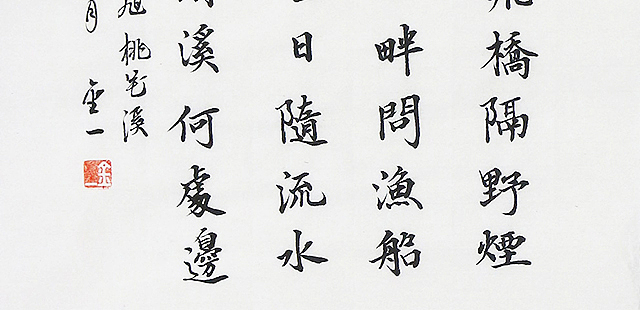 橋隔野煙
畔問漁船
日隨流水
溪何處邊
旭桃花溪
月